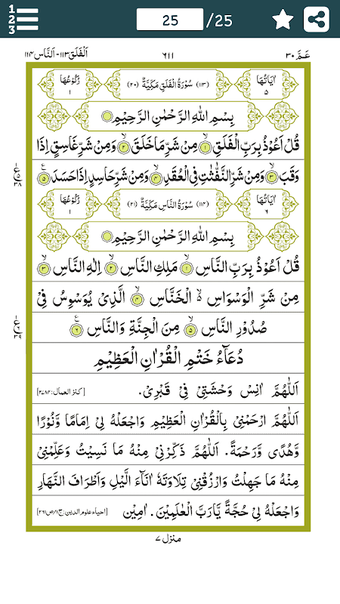 1
2
3
25
/25
اَلْفَلَق ۱۱۳ - اَلنَّاس ۱۱۴
۶۱۱
عَمّ ۳۰
اٰيَاتُهَا ۵
(۱۱۳) سُوْرَةُ الْفَلَقِ مَكِّيَّةٌ (۲۰)
رُكُوْعُهَا ۱
بِسْمِ اللّٰهِ الرَّحْمٰنِ الرَّحِيْمِ
قُلْ اَعُوْذُ بِرَبِّ الْفَلَقِ ۱ مِنْ شَرِّ مَا خَلَقَ ۲ وَمِنْ شَرِّ غَاسِقٍ اِذَا
وَقَبَ ۳ وَمِنْ شَرِّ النَّفّٰثٰتِ فِی الْعُقَدِ ۴ وَمِنْ شَرِّ حَاسِدٍ اِذَا حَسَدَ ۵
اٰيَاتُهَا ۶
(۱۱۴) سُوْرَةُ النَّاسِ مَكِّيَّةٌ (۲۱)
رُكُوْعُهَا ۱
بِسْمِ اللّٰهِ الرَّحْمٰنِ الرَّحِيْمِ
قُلْ اَعُوْذُ بِرَبِّ النَّاسِ ۱ مَلِكِ النَّاسِ ۲ اِلٰهِ النَّاسِ ۳
مِنْ شَرِّ الْوَسْوَاسِ ۙ الْخَنَّاسِ ۴ الَّذِیْ يُوَسْوِسُ فِیْ
صُدُوْرِ النَّاسِ ۵ مِنَ الْجِنَّةِ وَالنَّاسِ ۶
دُعَآءُ خَتْمِ الْقُرْاٰنِ الْعَظِيْمِ
اَللّٰهُمَّ اٰنِسْ وَحْشَتِیْ فِیْ قَبْرِیْ۔ [كنز العمال: ۲۷۸۴]
اَللّٰهُمَّ ارْحَمْنِیْ بِالْقُرْاٰنِ الْعَظِيْمِ وَاجْعَلْهُ لِیْ اِمَامًا وَّنُوْرًا
وَّهُدًی وَّرَحْمَةً۔ اَللّٰهُمَّ ذَكِّرْنِیْ مِنْهُ مَا نَسِيْتُ وَعَلِّمْنِیْ
مِنْهُ مَا جَهِلْتُ وَارْزُقْنِیْ تِلَاوَتَهٗ اٰنَآءَ الَّيْلِ وَاَطْرَافَ النَّهَارِ
وَاجْعَلْهُ لِیْ حُجَّةً يَّارَبَّ الْعٰلَمِيْنَ۔ اٰمِيْن [احياء علوم الدين:
منزل ۷